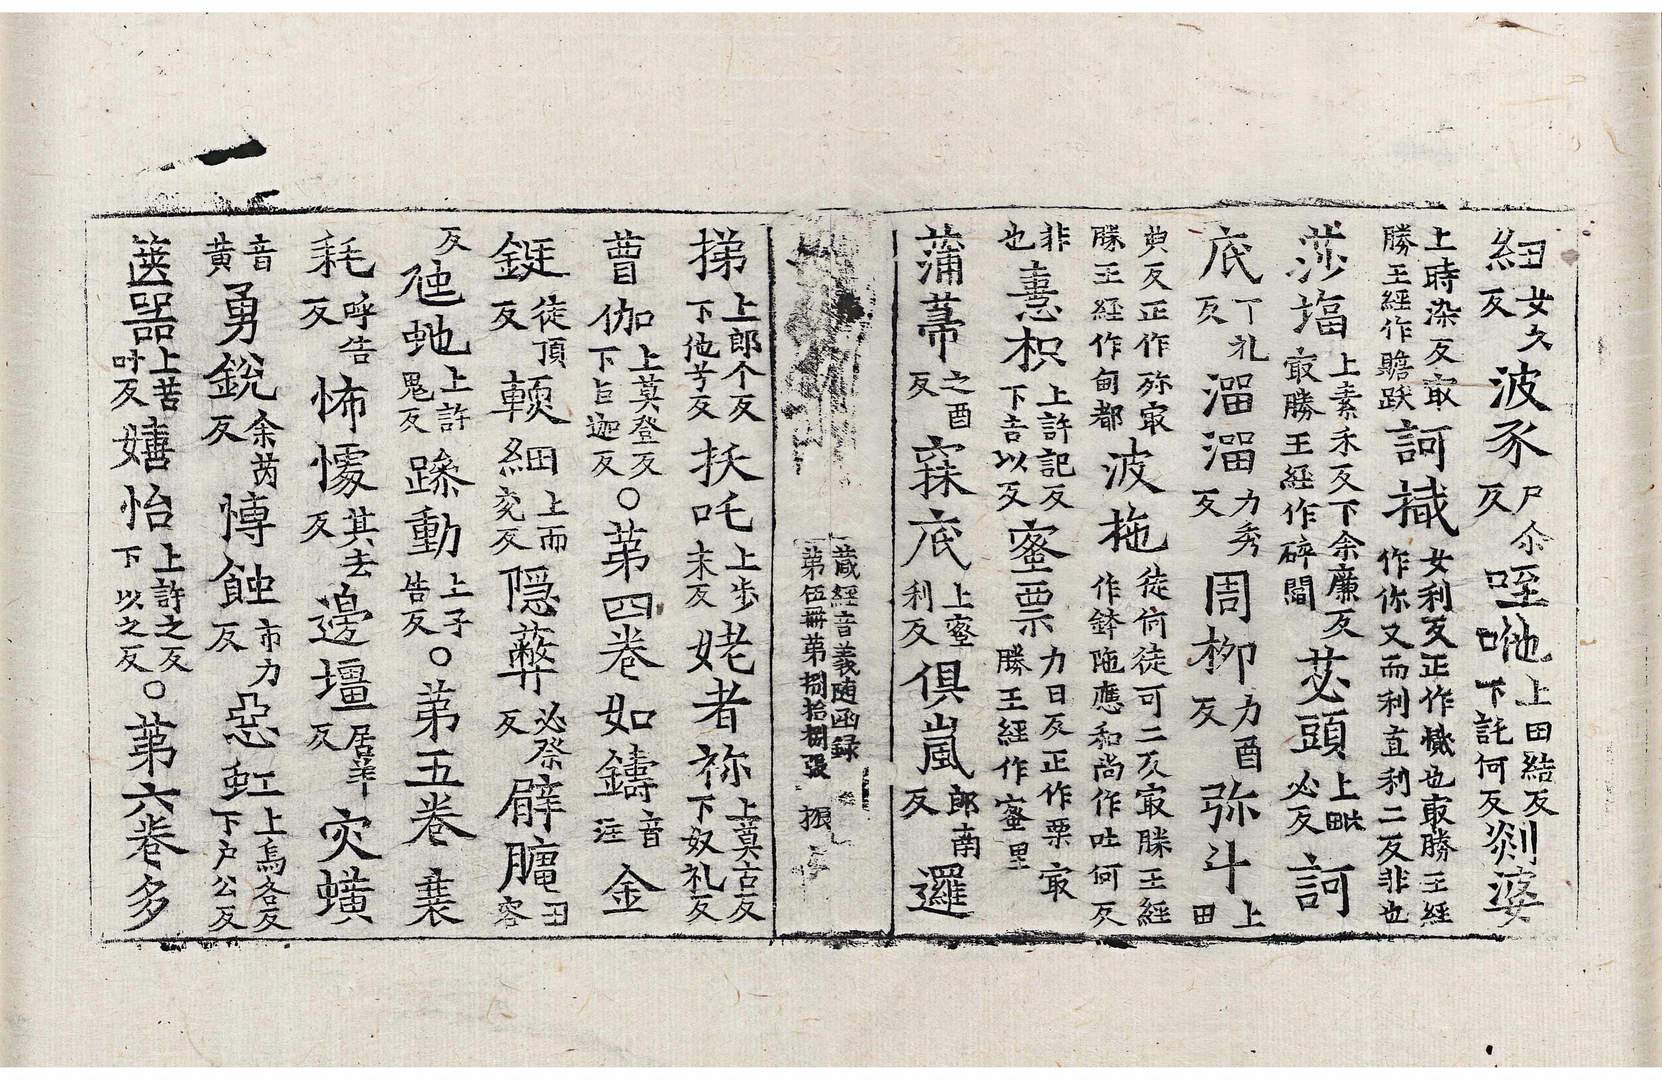 細女久反波豕尸尒反咥哋上田結反下託何反剡婆
上時染反㝡勝王經作贍跋訶擮女利反正作樴也㝡勝王經作你又而利直利二反非也
莎㙛上素禾反下余廉反㝡勝王經作碎閻苾頭上毗必反訶
底丁礼反溜溜力秀反周柳力酉反弥斗上田
典反正作殄㝡勝王經作甸都波拖徒何徒可二反㝡勝王經作鉢陁應和尚作吐何反
非也憙枳上許記反下吉以反蜜票力日反正作栗㝡勝王經作蜜里
蒲蒂之酉反寐底上蜜利反俱嵐郎南反邏
藏經音義随函録第伍冊第捌拾捌張 振
挮上郎个反下他兮反扷吒上步末反姥者祢上莫古反下奴礼反
瞢伽上莫登反下巨迦反○第四卷如鑄音注金
鋌徒頂反輭細上而兗反隱蔽必祭反臂𦟛丑容
反虵虺上許鬼反躁動上子告反○第五卷裹
耗呼告反怖懅其去反邊壃居羊反灾蟥
音黄勇銳余芮反愽蝕市力反惡虹上烏各反下户公反
篋器上苦叶反嬉怡上許之反下以之反○第六卷多